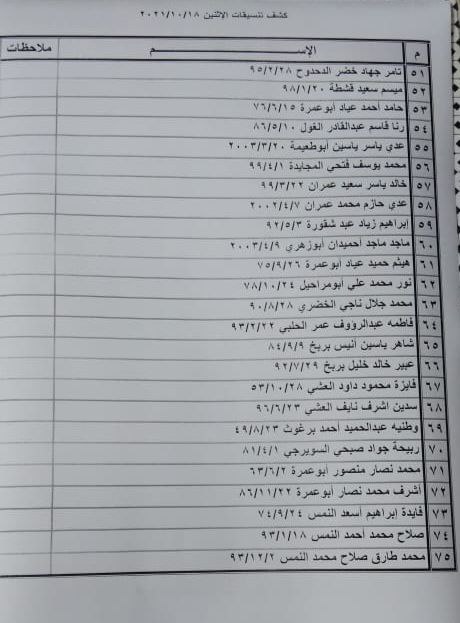 كشف تنسيقات الاثنين ٢٠٢١/١٠/١٨
م الإســـــم ملاحظات
٥١ تامر جهاد خضر الدحدوح ٩٥/٢/٢٨
٥٢ ميسم سعيد قشطة ٩٨/١/٢٠
٥٣ حامد أحمد عياد أبوعمرة ٧٦/٦/١٥
٥٤ رنا قاسم عبدالقادر الغول ٨٦/٥/١٠
٥٥ عدي ياسر ياسين أبوطعيمة ٢٠٠٣/٣/٢٠
٥٦ محمد يوسف فتحي المجايدة ٩٩/٤/١
٥٧ خالد ياسر سعيد عمران ٩٩/٣/٢٢
٥٨ عدي حازم محمد عمران ٢٠٠٢/٤/٧
٥٩ إبراهيم زياد عبد شقورة ٩٢/٥/٣
٦٠ ماجد ماجد أحميدان أبوزهري ٢٠٠٣/٤/٩
٦١ هيثم حميد عياد أبوعمرة ٧٥/٩/٢٦
٦٢ نور محمد علي أبومراحيل ٧٨/١٠/٢٤
٦٣ محمد جلال ناجي الخضري ٩٠/٨/٢٨
٦٤ فاطمه عبدالرؤوف عمر الحلبي ٩٣/٢/٢٢
٦٥ شاهر ياسين أنيس بريخ ٨٤/٩/٩
٦٦ عبير خالد خليل بريخ ٩٢/٧/٢٩
٦٧ فايزة محمود داود العشي ٥٣/١٠/٢٨
٦٨ سدين اشرف نايف العشي ٩٦/٦/٢٣
٦٩ وطنيه عبدالحميد أحمد برغوث ٤٩/٨/٢٣
٧٠ ربيحة جواد صبحي السويرجي ٨١/٤/١
٧١ محمد نصار منصور أبوعمرة ٦٣/٦/٢
٧٢ أشرف محمد نصار أبوعمرة ٨٦/١١/٢٢
٧٣ فايدة إبراهيم أسعد النمس ٧٤/٩/٢٤
٧٤ صلاح محمد أحمد النمس ٩٣/١/١٨
٧٥ محمد طارق صلاح محمد النمس ٩٣/١٢/٢